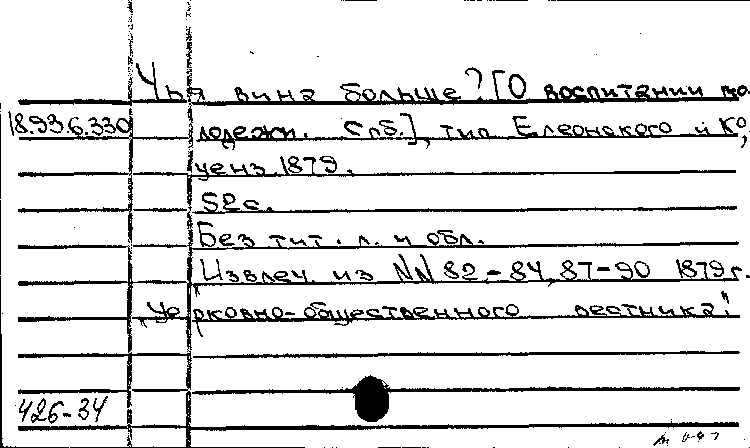 Чья вина больше? [О воспитании мо-
18.93.6.330
лодежи. Спб.], тип. Елеонского и К°,
ценз. 1879.
52 с.
Без тит. л. и обл.
Извлеч. из NN 82-84, 87-90 1879 г.
"Церковно-общественного вестника"
426-34